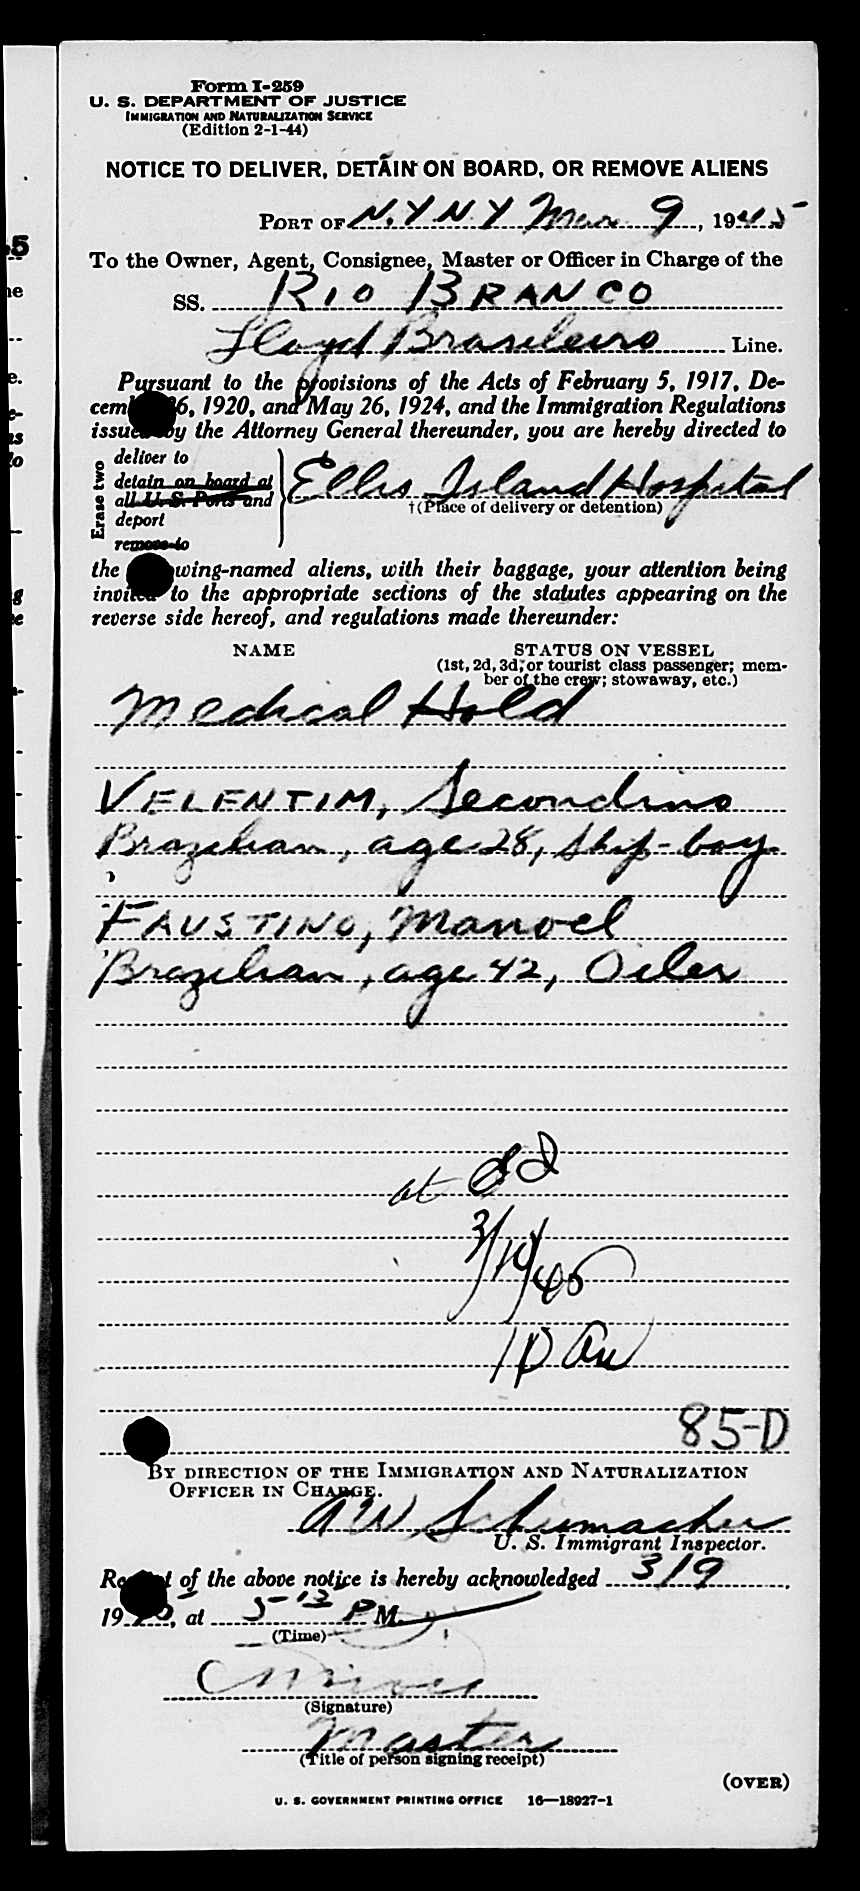 Form I-259
U. S. DEPARTMENT OF JUSTICE
IMMIGRATION AND NATURALIZATION SERVICE
(Edition 2-1-44)
NOTICE TO DELIVER, DETAIN ON BOARD, OR REMOVE ALIENS
PORT OF N.Y N.Y Mar 9, 1945
To the Owner, Agent, Consignee, Master or Officer in Charge of the
SS. RIO BRANCO
Lloyd Brasileiro Line.
Pursuant to the provisions of the Acts of February 5, 1917, De-
cem 6, 1920, and May 26, 1924, and the Immigration Regulations
issued by the Attorney General thereunder, you are hereby directed to
Erase two
deliver to
detain on board at
all U. S. Ports and
deport
remove to
Ellis Island Hospital
†(Place of delivery or detention)
the wing-named aliens, with their baggage, your attention being
invited to the appropriate sections of the statutes appearing on the
reverse side hereof, and regulations made thereunder:
NAME STATUS ON VESSEL
(1st, 2d, 3d, or tourist class passenger; mem-
ber of the crew; stowaway, etc.)
Medical Hold
VELENTIM, Secondino
Brazilian, age 28, ship-boy
FAUSTINO, Manoel
Brazilian, age 42, Oiler
at
3/10/45
10 am
85-D
BY DIRECTION OF THE IMMIGRATION AND NATURALIZATION
OFFICER IN CHARGE.
AW Schumacher
U. S. Immigrant Inspector.
Receipt of the above notice is hereby acknowledged 3/9,
1945, at 5 15 P M.
(Time)
(Signature)
Master
(Title of person signing receipt)
(OVER)
U. S. GOVERNMENT PRINTING OFFICE 16—18927-1